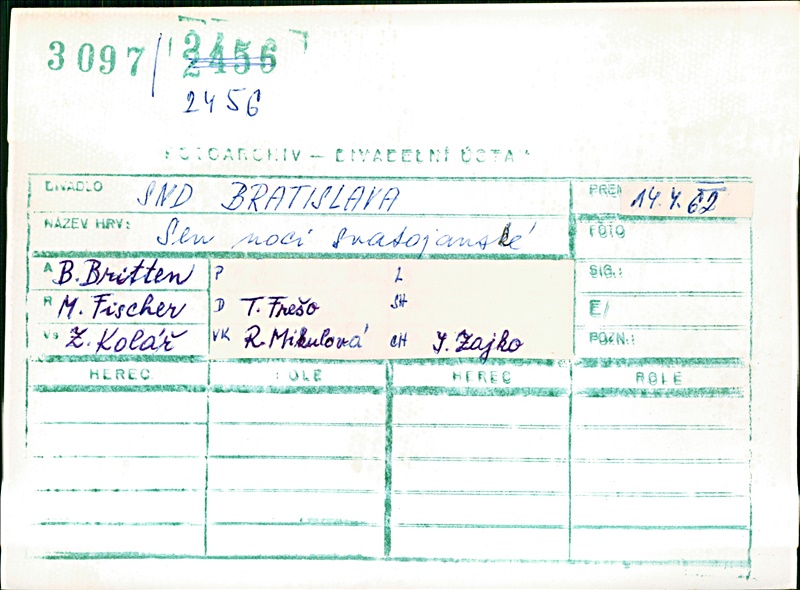 3097/ 2456
2456
FOTOARCHIV — DIVADELNÍ ÚSTAV
DIVADLO SND BRATISLAVA PREM 14.4.62
NÁZEV HRY: Sen noci svatojanské FOTO
A B. Britten P L SIG.:
R M. Fischer D T. Frešo SH E/
VS Z. Kolář VK R. Mikulová CH J. Zajko POZN.:
HEREC ROLE HEREC ROLE